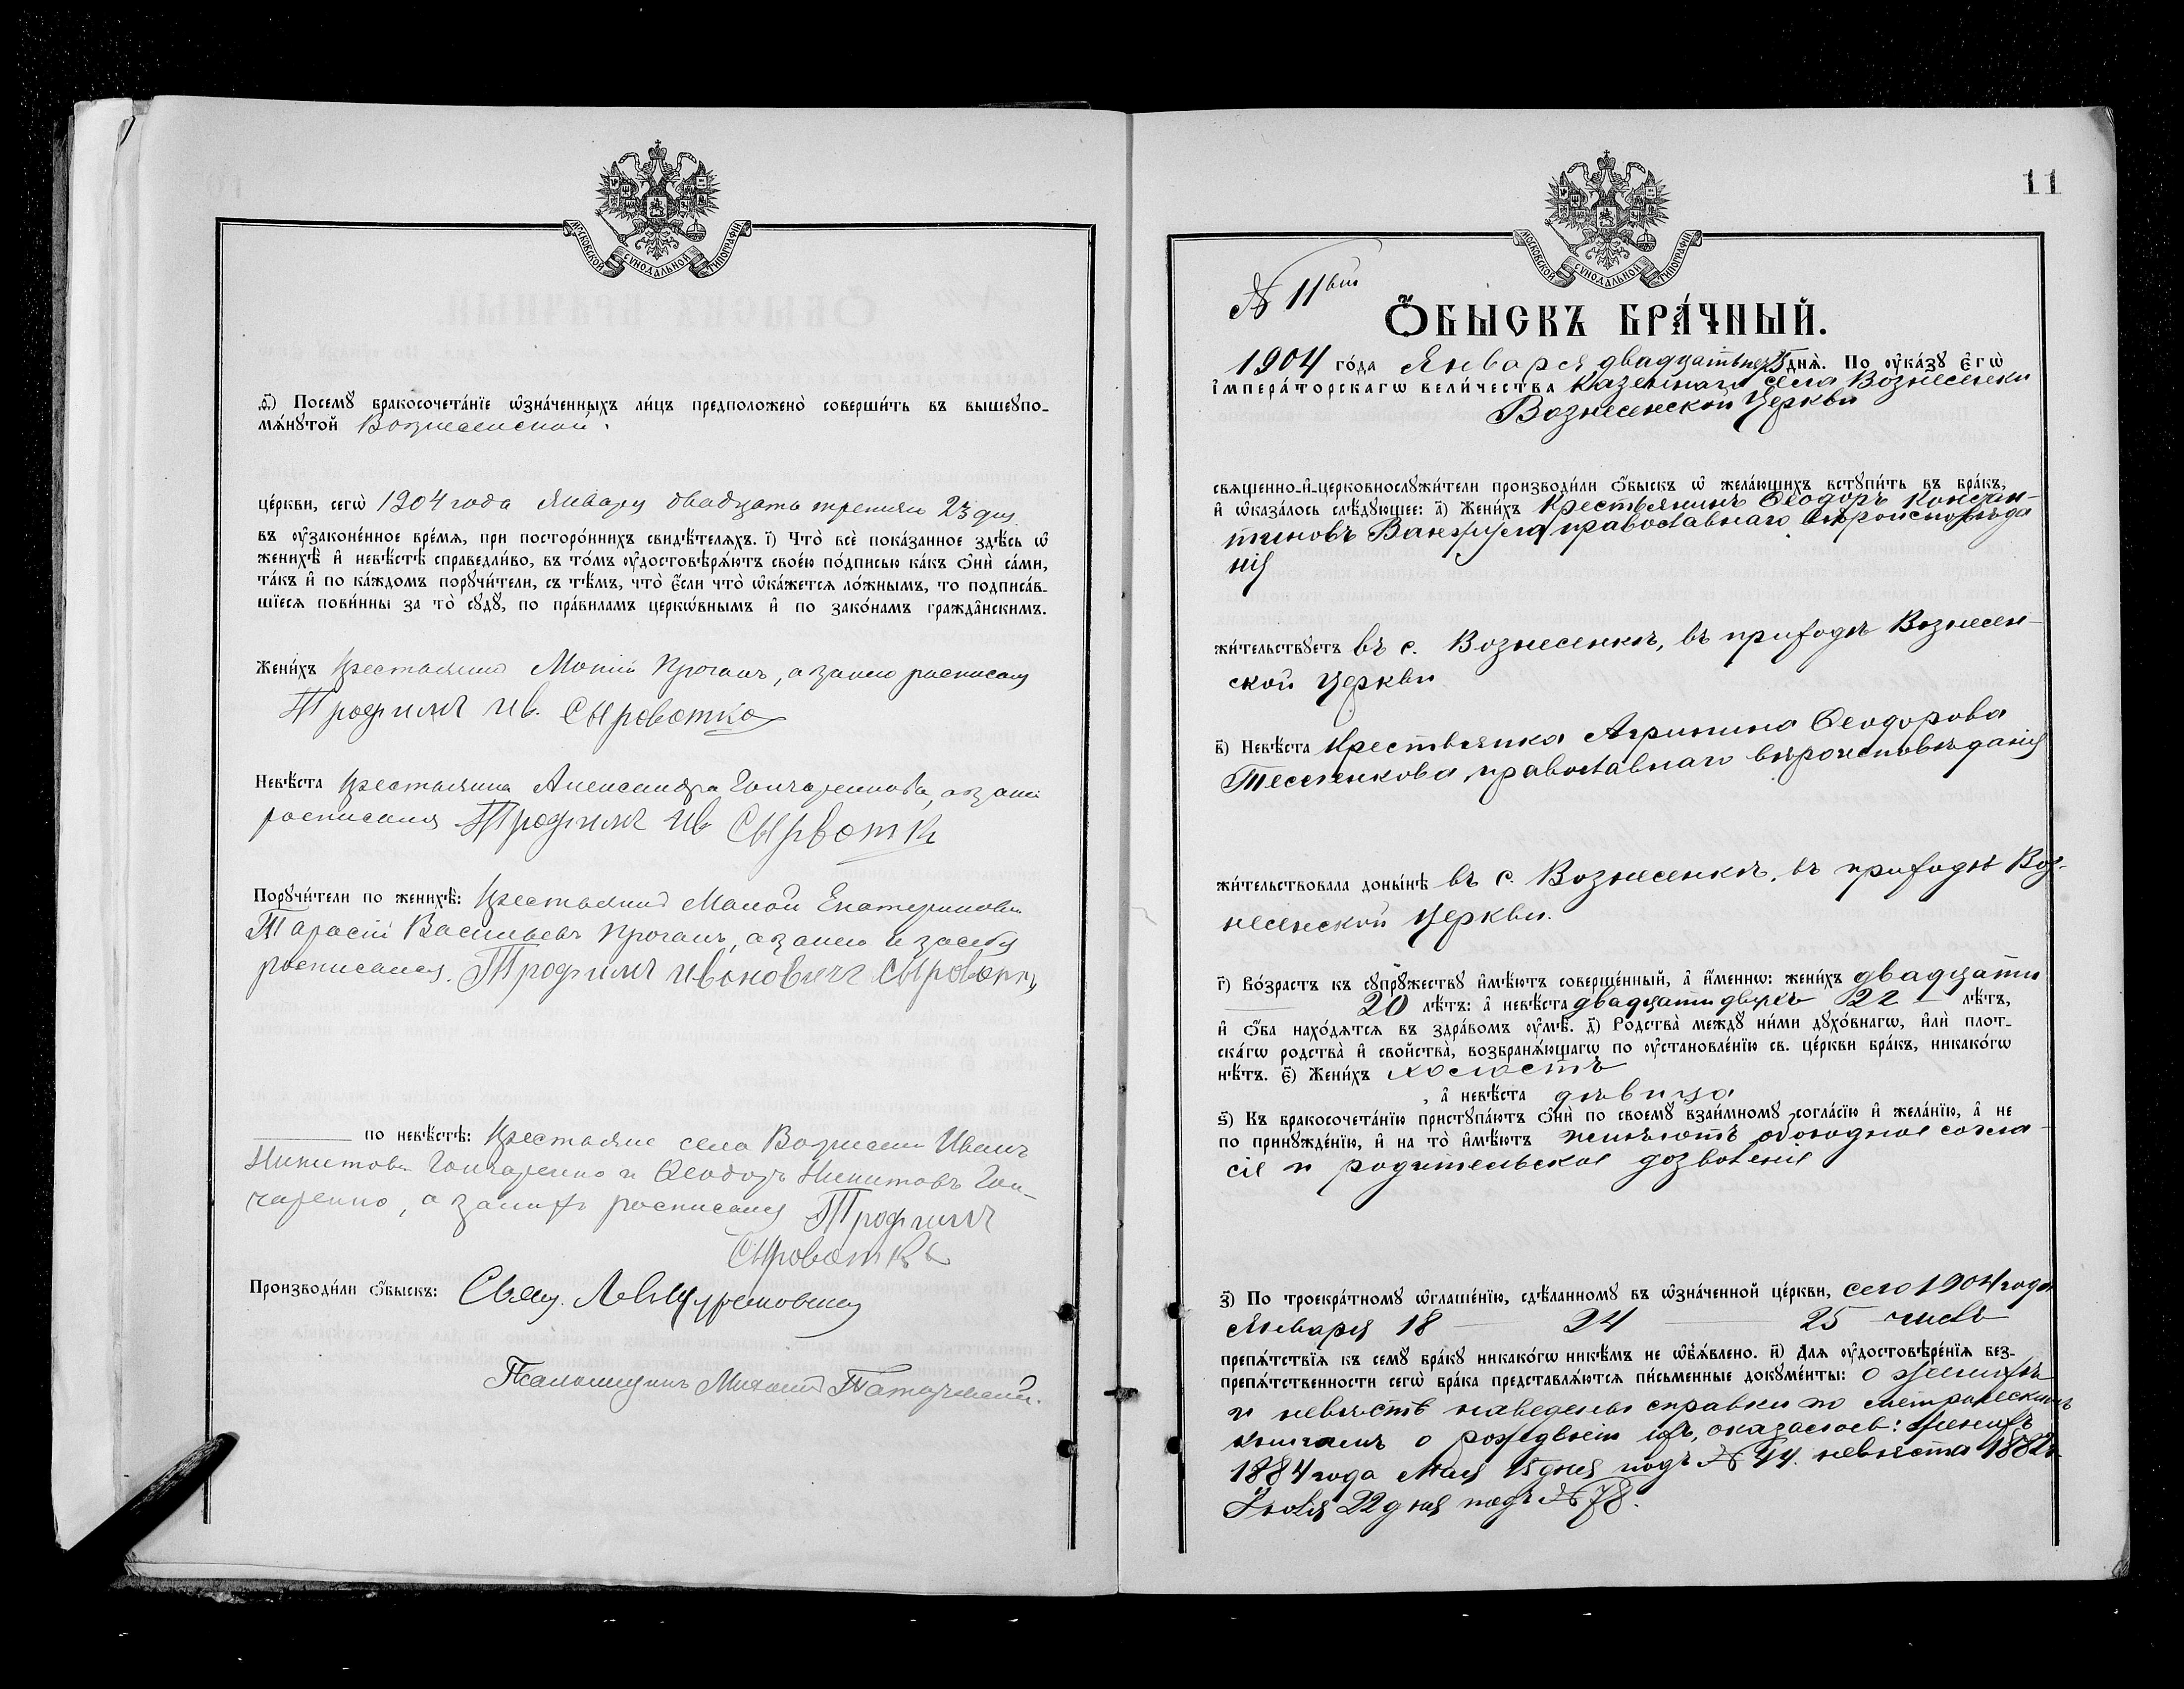 МОСКОВСКОЙ СѴНОДАЛЬНОЙ ТИПОГРАФІИ
ѳ҃) Посемꙋ бракосочета́нїе ѡ҆зна́ченныхъ ли́цъ предположено̀ соверши́ть въ вышеꙋпо-
мѧ́нꙋтой Вознесенской
це́ркви, сегѡ̀ 1904 года Января двадцать третьяго 23 дня
въ ᲂу҆законе́нное вре́мѧ, при посторо́ннихъ свидѣ́телѧхъ. і҃) Что̀ всѐ пока́занное здѣ́сь ѡ҆
женихѣ̀ и҆ невѣ́стѣ справедли́во, въ то́мъ ᲂу҆достовѣрѧ́ютъ свое́ю по́дписью ка́къ ѻ҆нѝ са́ми,
та́къ и҆ по ка́ждомъ порꙋчи́тели, съ тѣ́мъ, что̀ є҆́сли что̀ ѡ҆ка́жетсѧ ло́жнымъ, то подписа́в-
шїесѧ пови́нны за то̀ сꙋдꙋ̀, по пра́виламъ церкѡ́внымъ и҆ по зако́намъ гражда̂нскимъ.
Жени́хъ крестьянинъ Мокій Проганъ, а за него росписался
Трофимъ Ив. Сыроватко
Невѣ́ста крестьянка Александра Гончаренкова, а за нея
росписался Трофимъ Ив Сырватк
Порꙋчи́тели по женихѣ̀: крестьянинъ Малой Екатериновки
Тарасій Васильевъ Проганъ, а за него и за себя
росписался. Трофимъ Ивановичъ Сыроватк
по невѣ́стѣ: крестьяне села Вознесенки Иванъ
Никитовъ Гончаренко и Ѳеодоръ Никитовъ Гон-
чаренко, а за нихъ росписался Трофимъ
Сыроватка
Производи́ли ѻ҆́быскъ: Свящ.
Псаломщикъ Михаилъ
11
МОСКОВСКОЙ СѴНОДАЛЬНОЙ ТИПОГРАФІИ
№ 11
Ѻ҆́БЫСКЪ БРА́ЧНЫЙ.
1904 го́да Января двадцать днѧ̀. По ᲂу҆ка́зꙋ є҆гѡ̀
і҆мпера́торскагѡ вели́чества казеннаго села Вознесенки
Вознесенской Церкви
свѧщенно-и҆-церковнослꙋжи́тели производи́ли ѻ҆́быскъ ѡ҆ жела́ющихъ встꙋпи́ть въ бра́къ,
и҆ ѡ҆каза́лось слѣ́дꙋющее: а҃) Жени́хъ Крестьянинъ Ѳеодоръ Констан-
тиновъ Ванжула православнаго вѣроисповѣда
нія
жи́тельствꙋетъ въ с. Вознесенкѣ, въ приходѣ Вознесен-
ской Церкви
в҃) Невѣ́ста Крестьянка Агрипина Ѳеодорова
Тесленкова, православнаго вѣроисповѣданія
жи́тельствовала доны́нѣ въ с. Вознесенкѣ, въ приходѣ Воз-
несенской Церкви.
г҃) Во́зрастъ къ сꙋпрꙋ́жествꙋ и҆мѣ́ютъ соверше́нный, а҆ и҆́меннѡ: жени́хъ двадцати
20 лѣ́тъ: а҆ невѣ́ста двадцати двухъ 22 лѣ́тъ,
и҆ ѻ҆́ба нахо́дѧтсѧ въ здра́вомъ ᲂу҆мѣ̀. д҃) Родства̀ междꙋ̀ ни́ми дꙋхо́внагѡ, и҆лѝ плот-
ска́гѡ родства̀ и҆ свойства̀, возбранѧ́ющагѡ по ᲂу҆становле́нїю св. це́ркви бра́къ, никако́гѡ
нѣ́тъ. є҃) Жени́хъ холостъ
, а҆ невѣ́ста дѣвица
ѕ҃) Къ бракосочета́нїю пристꙋпа́ютъ ѻ҆нѝ по своемꙋ̀ взаи́мномꙋ согла́сїю и҆ жела́нїю, а҆ не
по принꙋжде́нїю, и҆ на то̀ и҆мѣ́ютъ обоюдное согла-
сіе и родительское дозволеніе
з҃) По троекра́тномꙋ ѡ҆глаше́нїю, сдѣ́ланномꙋ въ ѡ҆зна́ченной це́ркви, сего 1904 года
Января 18 24 25 числъ
препѧ́тствїѧ къ семꙋ̀ бра́кꙋ никако́гѡ никѣ́мъ не ѡ҆б̾ѧ́влено. и҃) Длѧ ᲂу҆достовѣре́нїѧ без-
препѧ́тственности сегѡ̀ бра́ка представлѧ́ютсѧ пи́сьменные докꙋме́нты: о женихѣ
и невѣстѣ наведены справки по метрическимъ
книгамъ о рожденіи ихъ, оказалось: Женихъ
1884 года Мая 15 дня подъ № 44. невѣста 1882 г
Іюля 22 дня подъ № 78.